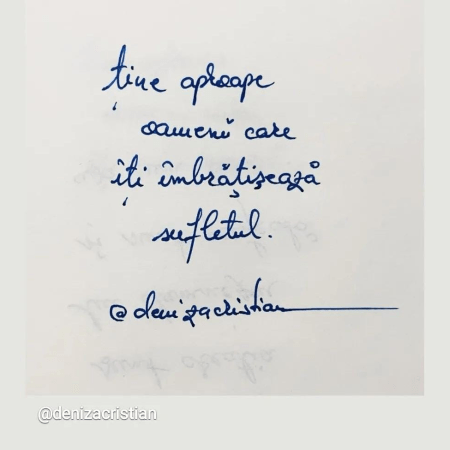 ține aproape
oamenii care
îți îmbrățișează
sufletul.
@denizacristian
@denizacristian